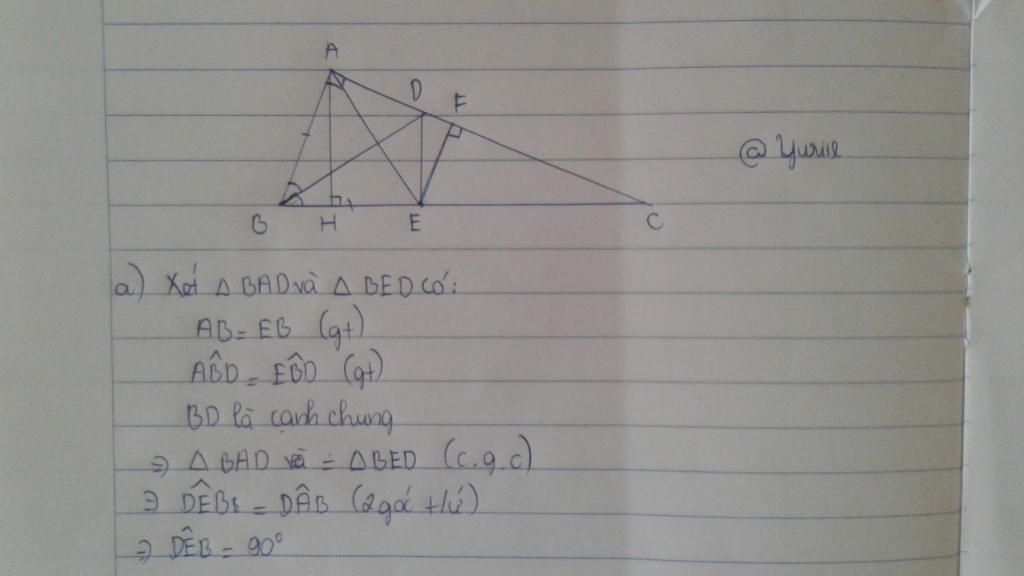 A
D
F
@ Yurie
B H E C
a) Xét △ BAD và △ BED có:
AB = EB (gt)
AB̂D = EB̂D (gt)
BD là cạnh chung
⇒ △ BAD = △BED (c.g.c)
⇒ DÊB = DÂB (2 góc t/ứ)
⇒ DÊB = 90°